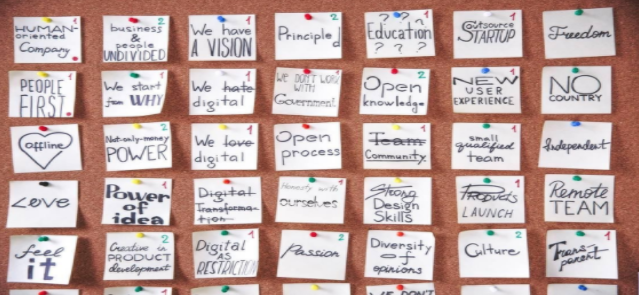 HUMAN-
oriented
Company.
1
business
&
people
UNDIVIDED
2
We have
A VISION
1
Principle
2
? ? ?
Education
? ? ?
1
Outsource
STARTUP
1
Freedom
PEOPLE
FIRST.
1
We start
from WHY
We hate
digital
1
WE DON'T WORK
WITH
Government
1
Open
knowledge
2
NEW
USER
EXPERIENCE
1
NO
COUNTRY
offline
Not-only-money
POWER
2
We love
digital
1
Open
process
1
Team
Community
1
small
qualified
team
1
Independent
Love
Power
of
idea
1
Digital
Transforma-
tion
1
Honesty with
ourselves
1
Strong
Design
Skills
Products
LAUNCH
1
Remote
TEAM
feel
it
Creative in
PRODUCT
development
2
Digital
AS
RESTRICTION
1
Passion
2
Diversity
of
opinions
2
Culture
2
Trans
parent
1
WE DON'T